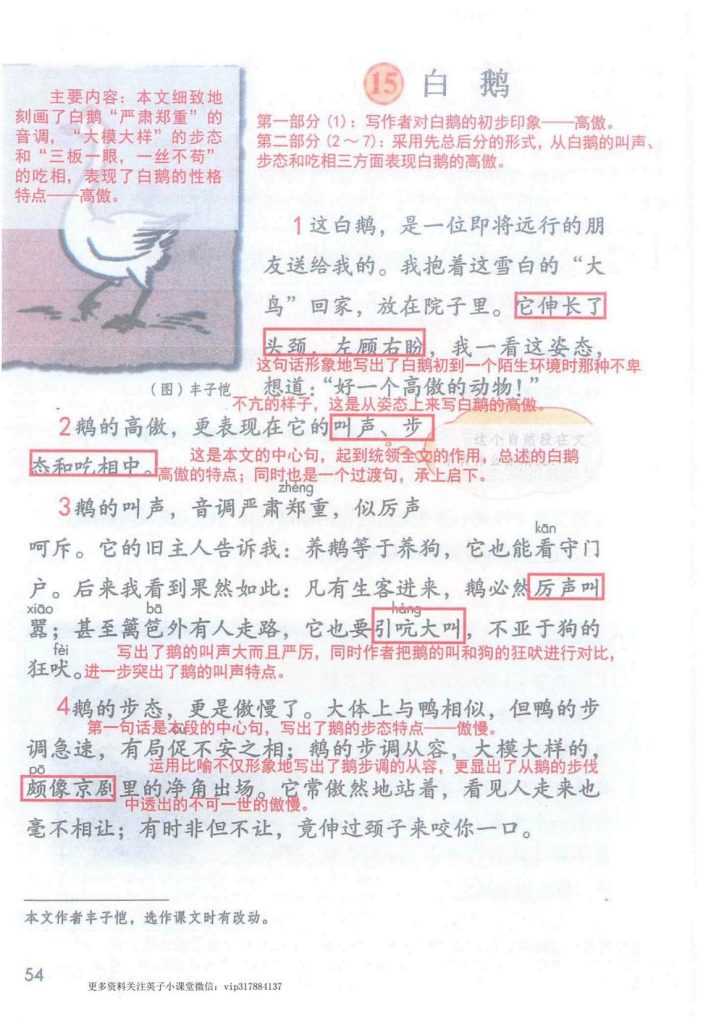 15 白 鹅
主要内容：本文细致地
刻画了白鹅“严肃郑重”的
音调，“大模大样”的步态
和“三板一眼，一丝不苟”
的吃相，表现了白鹅的性格
特点——高傲。
第一部分（1）：写作者对白鹅的初步印象——高傲。
第二部分（2～7）：采用先总后分的形式，从白鹅的叫声、
步态和吃相三方面表现白鹅的高傲。
1这白鹅，是一位即将远行的朋
友送给我的。我抱着这雪白的“大
鸟”回家，放在院子里。它伸长了
头颈，左顾右盼，我一看这姿态，
这句话形象地写出了白鹅初到一个陌生环境时那种不卑
（图）丰子恺
想道：“好一个高傲的动物！”
不亢的样子，这是从姿态上来写白鹅的高傲。
2鹅的高傲，更表现在它的叫声、步
这个自然段在文
态和吃相中。
这是本文的中心句，起到统领全文的作用，总述的白鹅
高傲的特点；同时也是一个过渡句，承上启下。
zhèng
3鹅的叫声，音调严肃郑重，似厉声
kān
呵斥。它的旧主人告诉我：养鹅等于养狗，它也能看守门
户。后来我看到果然如此：凡有生客进来，鹅必然厉声叫
xiāo bā háng
嚣；甚至篱笆外有人走路，它也要引吭大叫，不亚于狗的
写出了鹅的叫声大而且严厉，同时作者把鹅的叫和狗的狂吠进行对比，
fèi
狂吠。进一步突出了鹅的叫声特点。
4鹅的步态，更是傲慢了。大体上与鸭相似，但鸭的步
第一句话是本段的中心句，写出了鹅的步态特点——傲慢。
调急速，有局促不安之相；鹅的步调从容，大模大样的，
运用比喻不仅形象地写出了鹅步调的从容，更显出了从鹅的步伐
pō
颇像京剧里的净角出场。它常傲然地站着，看见人走来也
中透出的不可一世的傲慢。
毫不相让；有时非但不让，竟伸过颈子来咬你一口。
本文作者丰子恺，选作课文时有改动。
54
更多资料关注英子小课堂微信：vip317884137